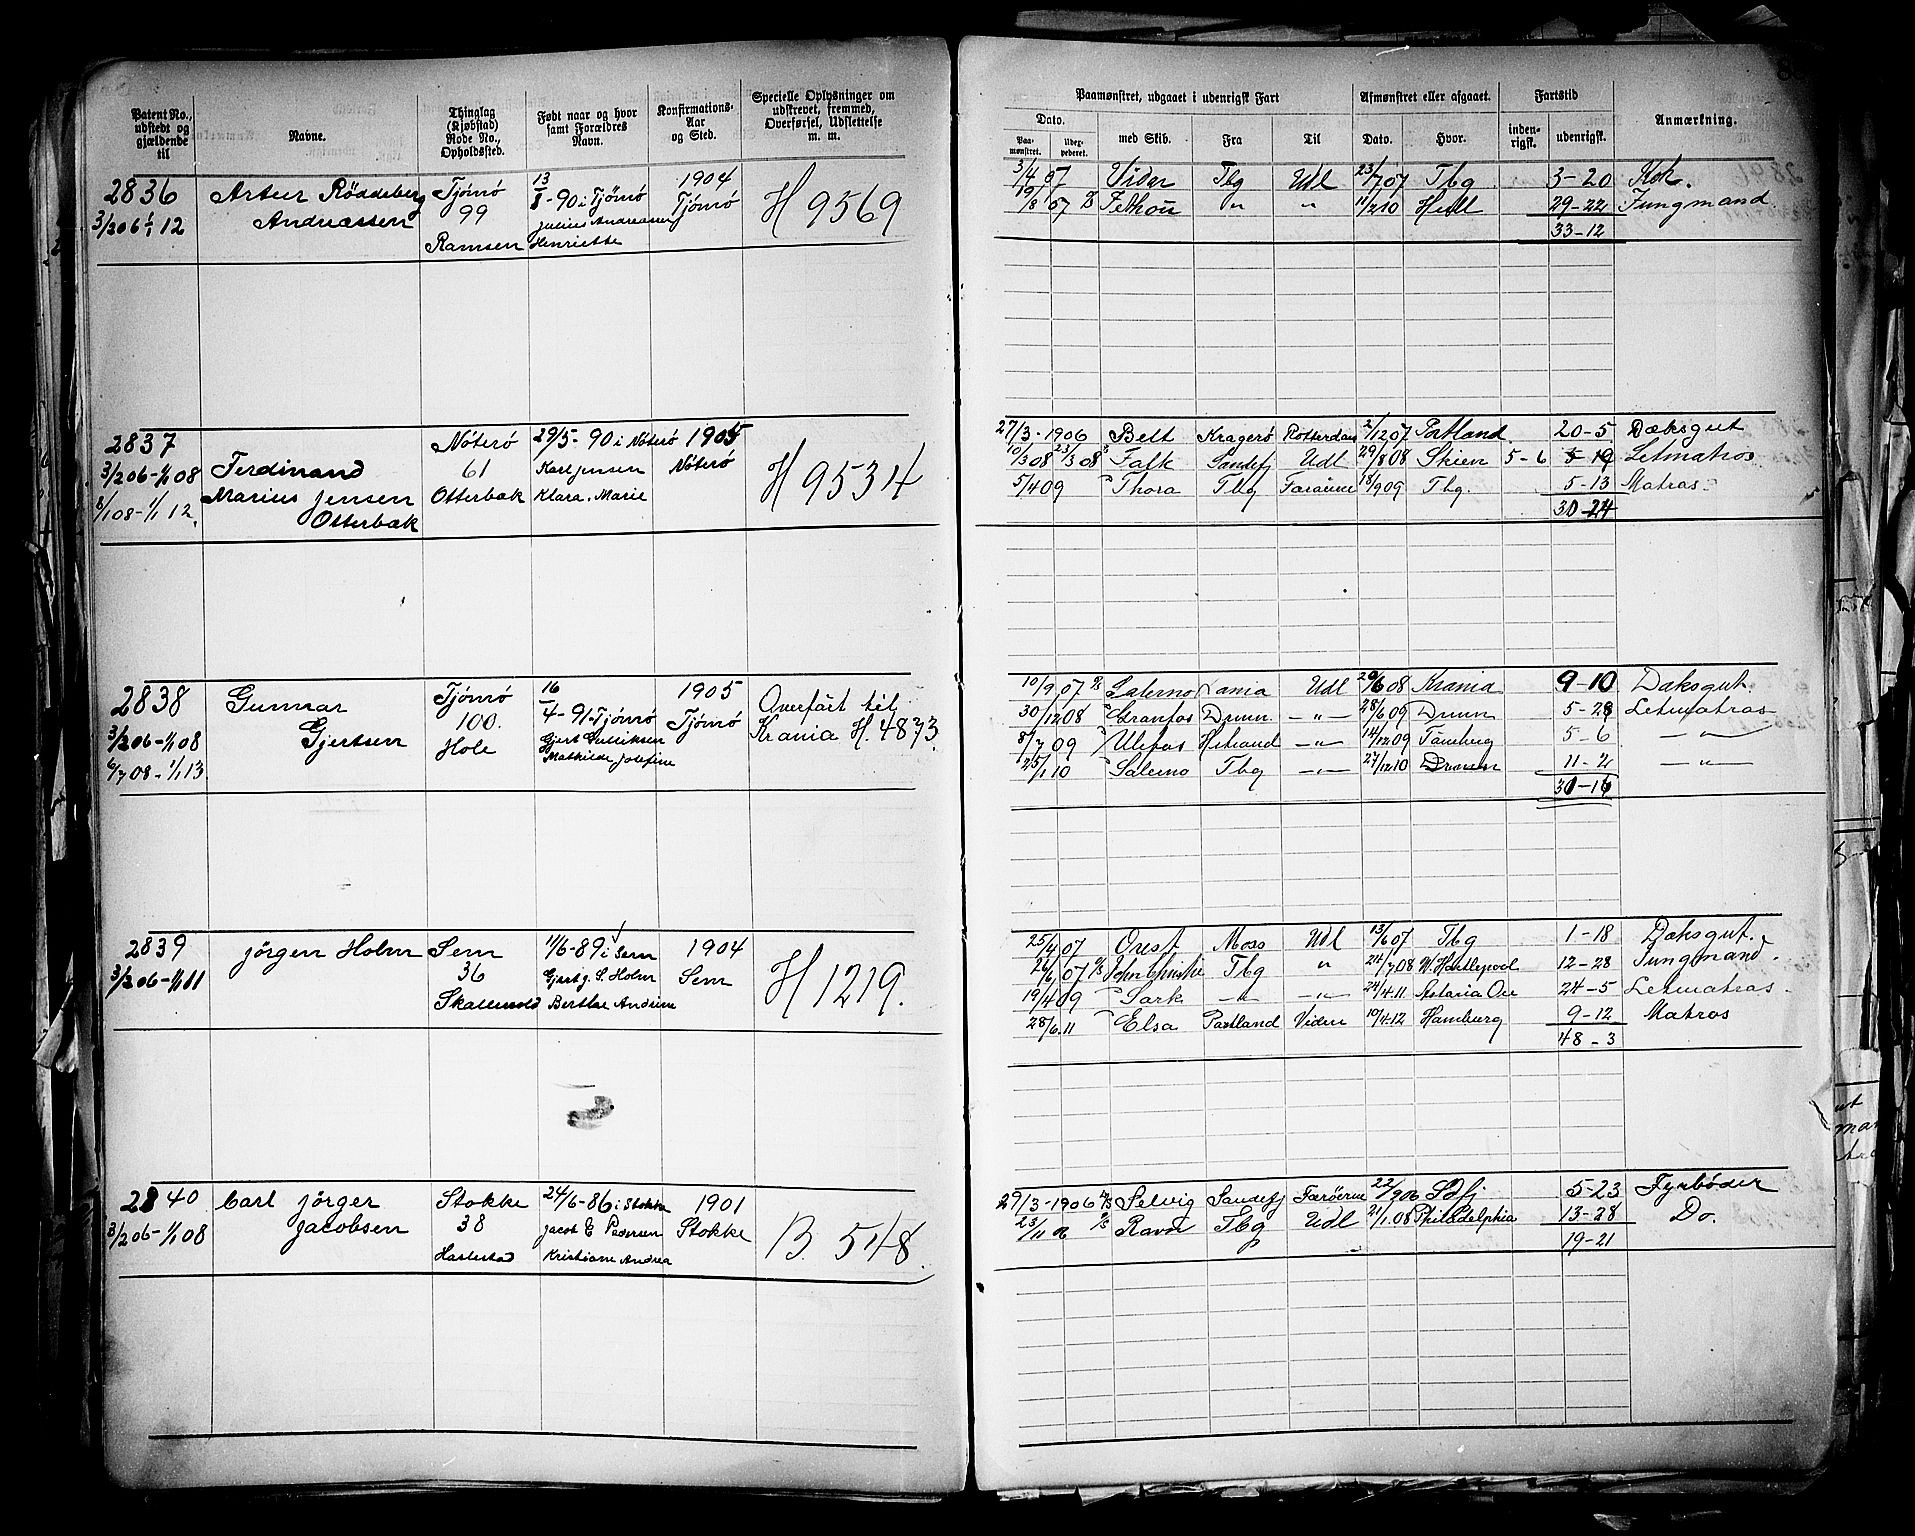 Patent No., udstedt og gjældende til
Navne.
Thinglag (Kjøbstad) Rode No., Opholdssted.
Født naar og hvor samt Forældres Navn.
Konfirmations-Aar og Sted.
Specielle Oplysninger om udstrevet, fremmed, Overførsel, Udslettelse m. m.
Paamønstret, udgaaet i udenrigsk Fart
Afmønstret eller afgaaet.
Fartstid
Anmærkning.
Dato.
Paa-mønstret.
med Skib.
Fra
Til
Dato.
Hvor.
inden-rigsk.
udenrigsk.
2836
3/2 06 1/1 12
Artur Röddeberg
Andreassen
Tjömö
99
Ramsen
13/8-90 i Tjömö
Julius Andreassen
Henriette
1904
Tjömö
H 9569
3/4 07 Vidar Tbg Udl 23/7 07 Tbg 3-20 Kok.
19/8 07 " " 11/2 10 Hull 29-22 Jungmand
33-12
2837
3/2 06-1/1 08
8/1 08-1/1 12.
Ferdinand
Marius Jensen
Otterbæk
Nöterö
61
Otterbæk
29/5-90 i Nöterö
Karl Jensen
Klara, Marie
1905
Nöterö
H 9534
27/3-1906 Belt Kragerö Rotterdam 2/12 07 Portland 20-5 Dæksgut
10/3 08 23/3 08 Falk Sandefj Udl 29/8 08 Skien 5-6 Letmatros
5/4 09 Thora Tbg 18/9 09 Tbg. 5-13 Matros
30-24
2838
3/2 06-1/1 08
6/7 08-1/1 13
Gunnar
Gjertsen
Tjömö
100.
Hole
16/4-91-Tjömö
Gjert Gulliksen
Mathilde Josefine
1905
Tjömö
Overfört til
Krania H. 4873
10/9 07 Salerno Udl 20/6 08 Krania 9-10 Daksgut.
30/12 08 Granfos Drmn -"- 28/6 09 Drmn Letmatros
8/7 09 Ulefos -"- 14/12 09 5-6 -"-
25/1 10 Salerno Tbg -"- 27/12 10 11-2 -"-
2839
3/2 06-1/1 11
Jörgen Holm
Sem
36
Skallevold
11/6-89 i Sem
Gjert J. S. Holm
Berthe Andrine
1904
Sem
H 1219.
25/4 07 Orest Moss Udl 13/6 07 Tbg 1-18 Daksgut.
26/6 07 John Christie Tbg " 24/7 08 W. Hartlepool 12-28 Jungmand.
19/4 09 Sark -"- -"- 24/4 11 24-5 Letmatros.
28/6 11 Elsa Portland Viden 10/4 12 Hamburg 9-12 Matros
48-3
2840
3/2 06-1/1 08
Carl Jörger
Jacobsen
Stokke
38
24/6-86 i Stokke
Jacob E Pedersen
Kristiane Andrea
1901
Stokke
B. 548.
29/3-1906 Selvig Sandefj Færöerne 22/ 1906 Sdfj 5-23 Fyrböder
23/11 06 Ravn Tbg Udl 21/1.08 Philadelphia 13-28 Do.
19-21